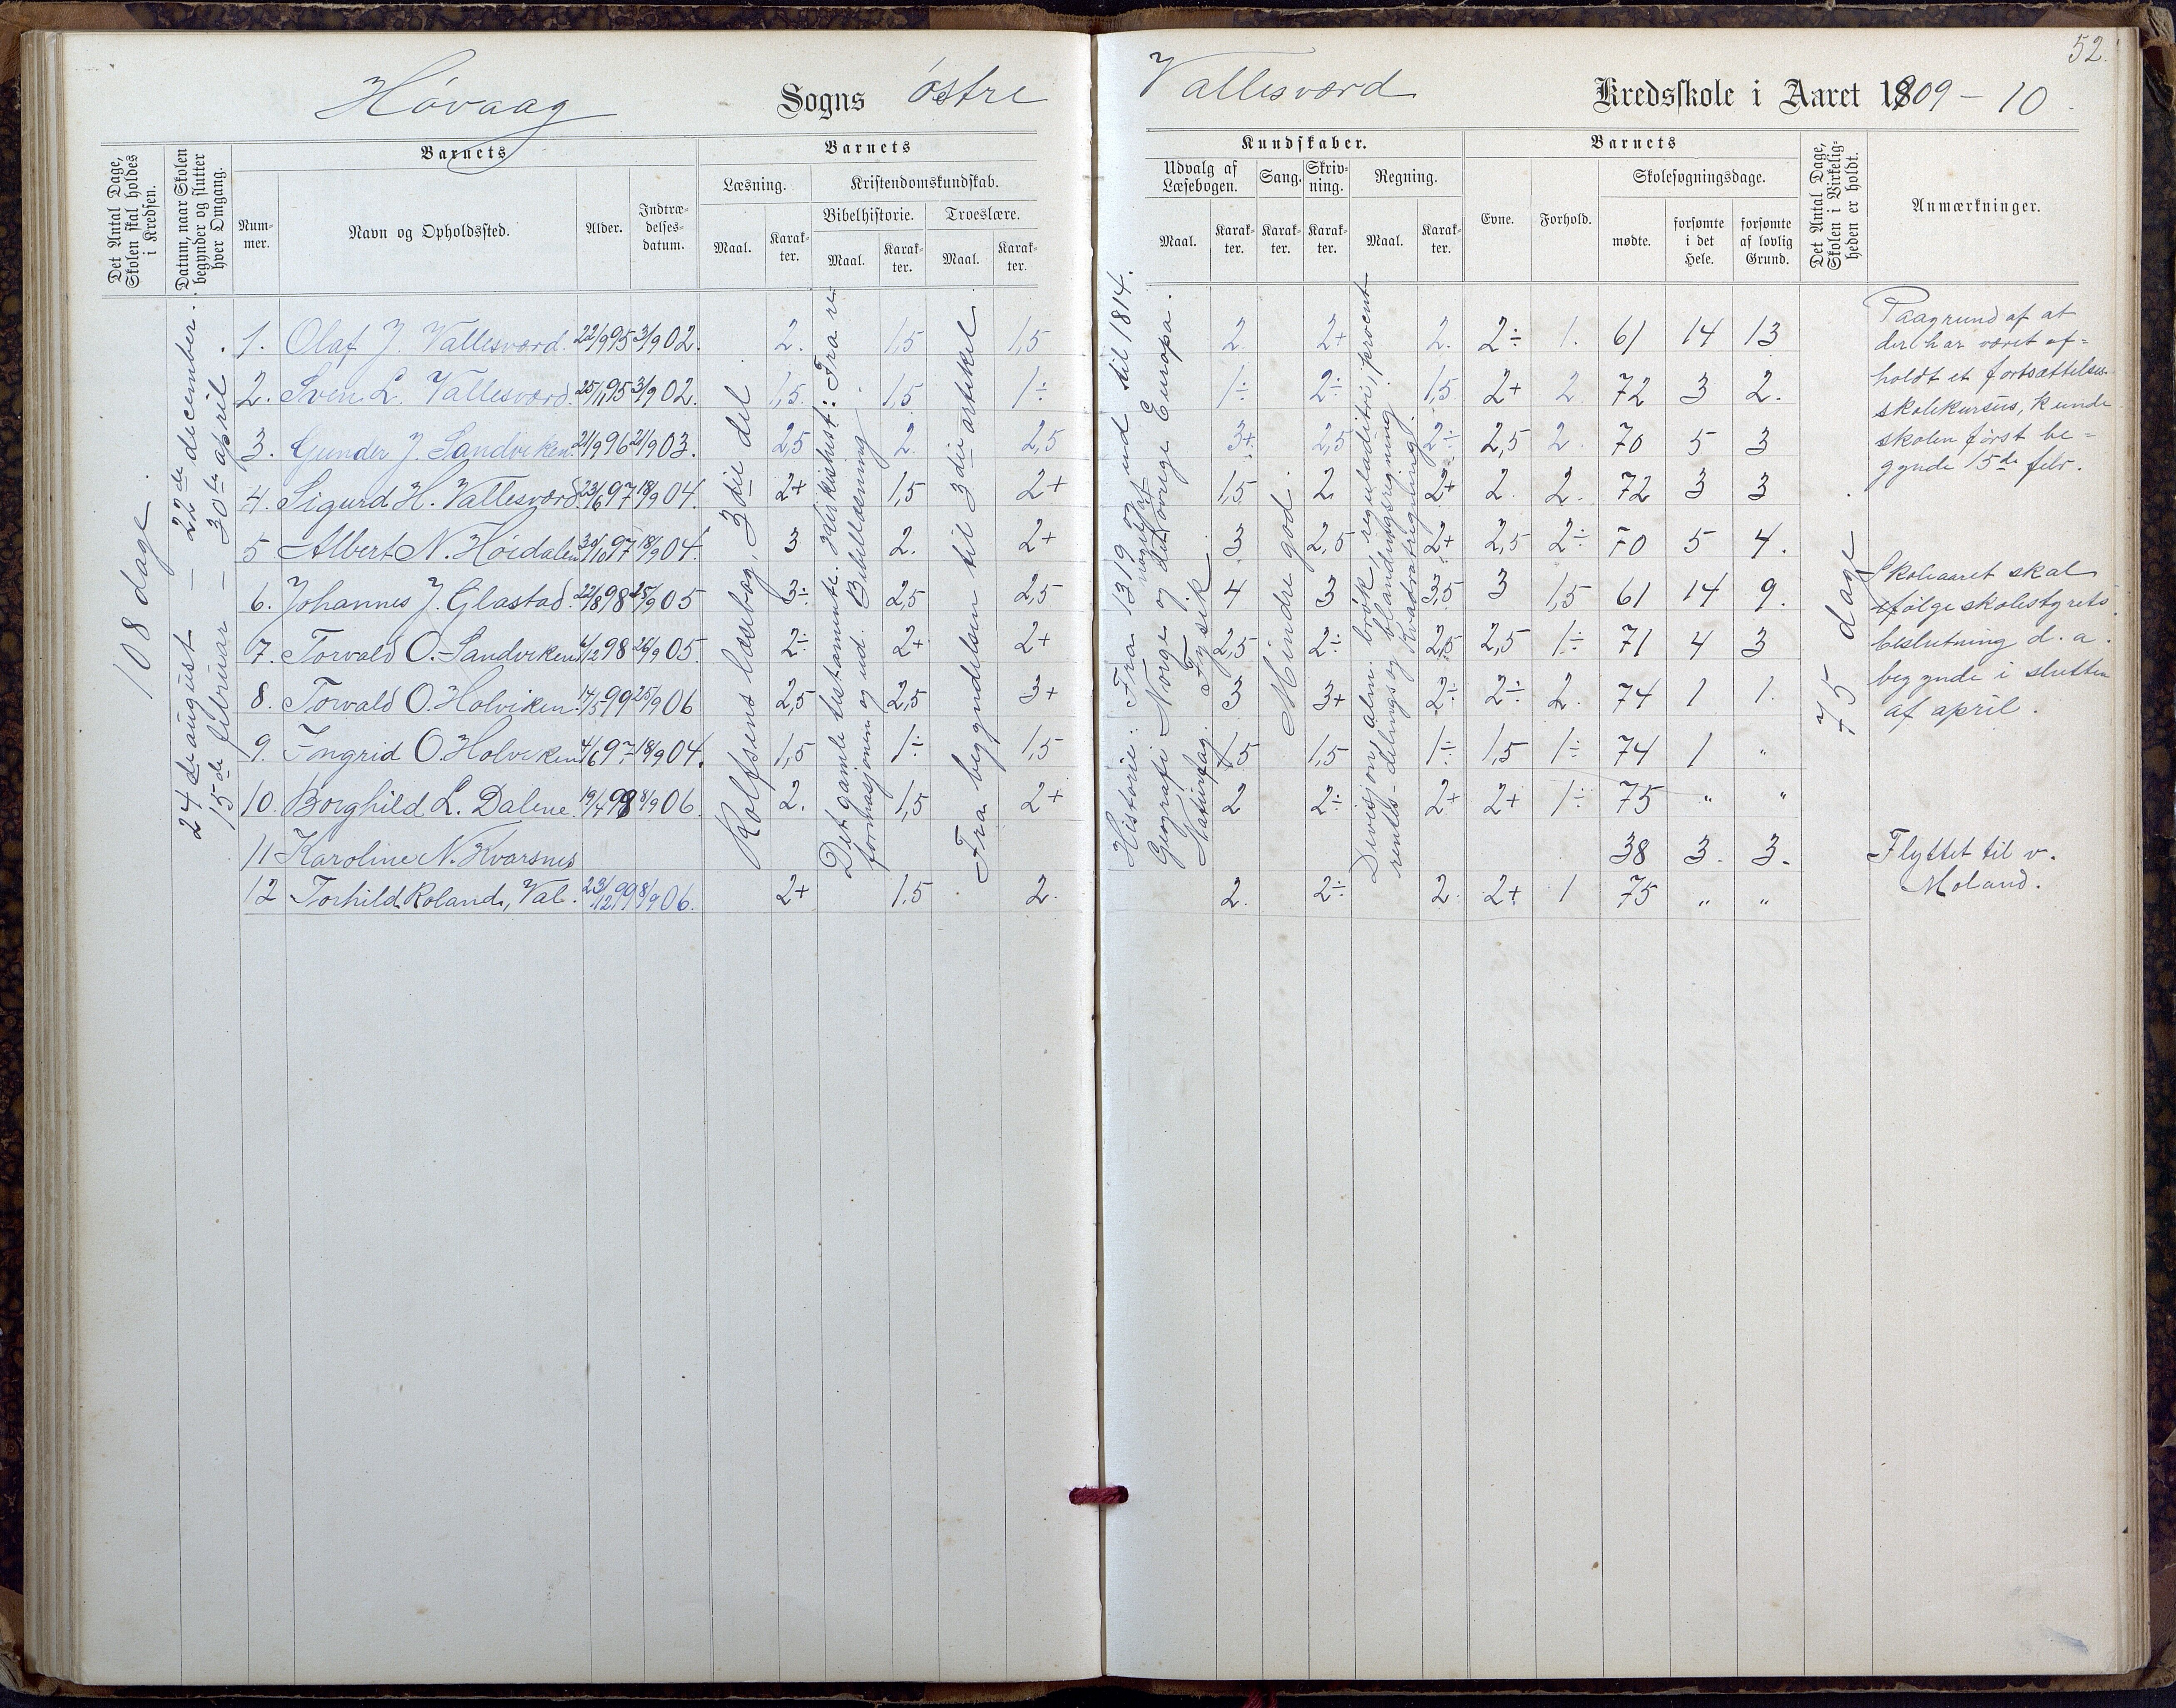 52.
Høvaag Sogns østre Vallesværd Kredsskole i Aaret 1909 – 10.
Det Antal Dage, Skolen skal holdes i Kredsen.
Datum, naar Skolen begynder og slutter hver Omgang.
Barnets
Nummer.
Navn og Opholdssted.
Alder.
Indtrædelsesdatum.
Barnets
Læsning.
Maal.
Karakter.
Kristendomskundskab.
Bibelhistorie.
Maal.
Karakter.
Troeslære.
Maal.
Karakter.
Kundskaber.
Udvalg af Læsebogen.
Maal.
Karakter.
Sang.
Karakter.
Skrivning.
Karakter.
Regning.
Maal.
Karakter.
Barnets
Evne.
Forhold.
Skolesøgningsdage.
mødte.
forsømte i det Hele.
forsømte af lovlig Grund.
Det Antal Dage, Skolen i Virkeligheden er holdt.
Anmærkninger.
108 dage.
24de august – 22de december.
15de februar – 30te april.
Rolfsens læsebog, 3die del
Det gamle testamente. Kirkehist: Fra re
formasjonen og ud. Bibellæsning
Fra begyndelsen til 3die artikel
Historie: Fra 1319 og ud til 1814.
Geografi Norge og det øvrige Europa.
Naturfag. Fysik
Mindre god.
Divisjon, alm. brøk, reguladitri, procent
rentes- delings og blandingsregning
Kvadratregning
75 dage
1. Olaf J. Vallesværd. 22/9 95 3/9 02. 2. 1,5 1,5 2. 2+ 2. 2÷ 1. 61 14 13
2. Sven L. Vallesværd. 25/11 95 3/9 02. 1,5. 1,5 1÷ 1÷ 2÷ 1,5 2+ 2 72 3 2.
3. Gunder J. Sandviken. 21/9 96 21/9 03. 2,5 2. 2,5 3+ 2,5 2÷ 2,5 2. 70 5 3
4. Sigurd H. Vallesværd. 23/6 97 18/9 04. 2+ 1,5 2+ 1,5 2 2+ 2. 2. 72 3 3
5 Albert N. Høidalen 30/10 97 18/9 04. 3 2. 2+ 3 2,5 2+ 2,5 2÷ 70 5 4.
6. Johannes J. Glastad. 22/8 98 25/9 05 3÷ 2,5 2,5 4 3 3,5 3 1,5 61 14 9.
7. Torvald O. Sandviken 6/12 98 26/9 05. 2÷ 2+ 2+ 2,5 2÷ 2,5 2,5 1÷ 71 4 3
8. Torvald O. Holviken. 14/5 99 25/9 06 2,5 2,5 3+ 3 3+ 2÷ 2÷ 2. 74 1 1.
9. Ingrid O. Holviken 4/6 97 18/9 04. 1,5 1÷ 1,5 1,5 1,5 1÷ 1,5 1÷ 74 1 "
10. Borghild L. Dalene. 19/4 98 8/9 06. 2. 1,5 2+ 2 2÷ 2+ 2+ 1÷ 75 " "
11 Karoline N. Kvarsnes 38 3. 3.
12 Torhild Roland, Val. 23/12 99 8/9 06. 2+ 1,5 2. 2. 2÷ 2. 2+ 1 75 " "
Paagrund af at
der har været af=
holdt et fortsættelses
skolekursus, kunde
skolen først be=
gynde 15de febr.
Skoleaaret skal
ifølge skolestyrets
beslutning d. a.
begynde i slutten
af april.
Flyttet til v.
Moland.